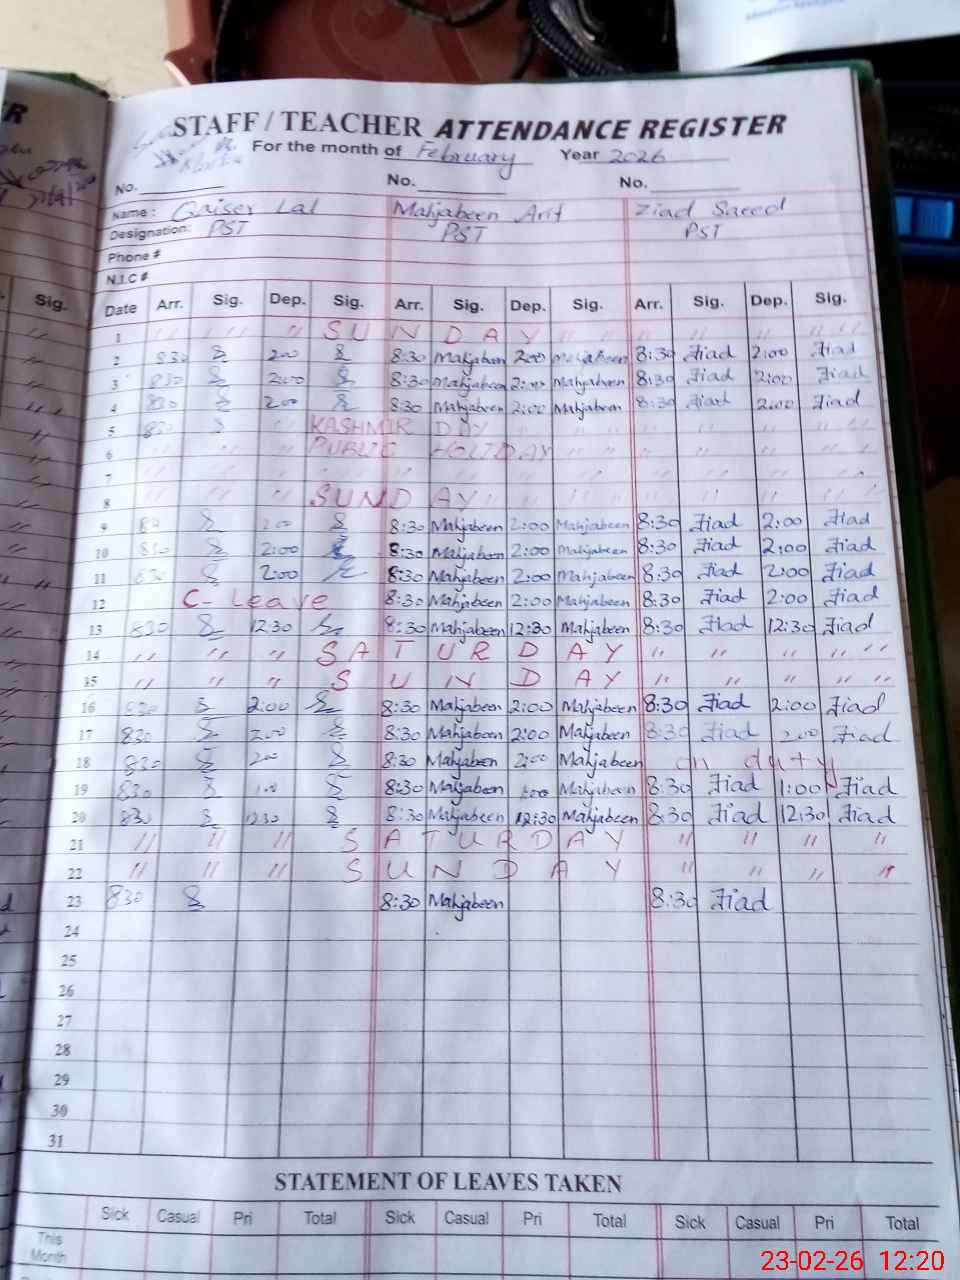 STAFF / TEACHER ATTENDANCE REGISTER
For the month of February Year 2026
No. No. No.
Name: Qaiser Lal Mahjabeen Arif Ziad Saeed
Designation: PST PST PST
Phone #
N.I.C #
Sig. Date Arr. Sig. Dep. Sig. Arr. Sig. Dep. Sig. Arr. Sig. Dep. Sig.
1 " " " " " SUNDAY " " " " " "
2 830 200 8:30 Mahjabeen 2:00 Mahjabeen 8:30 Ziad 2:00 Ziad
3 830 2:00 8:30 Mahjabeen 2:00 Mahjabeen 8:30 Ziad 2:00 Ziad
4 830 200 8:30 Mahjabeen 2:00 Mahjabeen 8:30 Ziad 2:00 Ziad
5 830 KASHMIR DAY " " " " " "
6 " " " PUBLIC HOLIDAY " " " " " "
7 " " " " " " " " " "
8 " " " SUNDAY " " " " " " "
9 200 8:30 Mahjabeen 2:00 Mahjabeen 8:30 Ziad 2:00 Ziad
10 830 2:00 8:30 Mahjabeen 2:00 Mahjabeen 8:30 Ziad 2:00 Ziad
11 830 2:00 8:30 Mahjabeen 2:00 Mahjabeen 8:30 Ziad 2:00 Ziad
12 C- Leave 8:30 Mahjabeen 2:00 Mahjabeen 8:30 Ziad 2:00 Ziad
13 830 12:30 8:30 Mahjabeen 12:30 Mahjabeen 8:30 Ziad 12:30 Ziad
14 " " " SATURDAY " " " " "
15 " " " SUNDAY " " " " "
16 830 2:00 8:30 Mahjabeen 2:00 Mahjabeen 8:30 Ziad 2:00 Ziad
17 830 200 8:30 Mahjabeen 2:00 Mahjabeen 8:30 Ziad 200 Ziad
18 830 200 8:30 Mahjabeen 2:00 Mahjabeen on duty
19 830 1:00 8:30 Mahjabeen 1:00 Mahjabeen 8:30 Ziad 1:00 Ziad
20 830 1230 8:30 Mahjabeen 12:30 Mahjabeen 8:30 Ziad 12:30 Ziad
21 " " " SATURDAY " " " "
22 " " " SUNDAY " " " "
23 830 8:30 Mahjabeen 8:30 Ziad
24
25
26
27
28
29
30
31
STATEMENT OF LEAVES TAKEN
Sick Casual Pri Total Sick Casual Pri Total Sick Casual Pri Total
This
Month
23-02-26 12:20